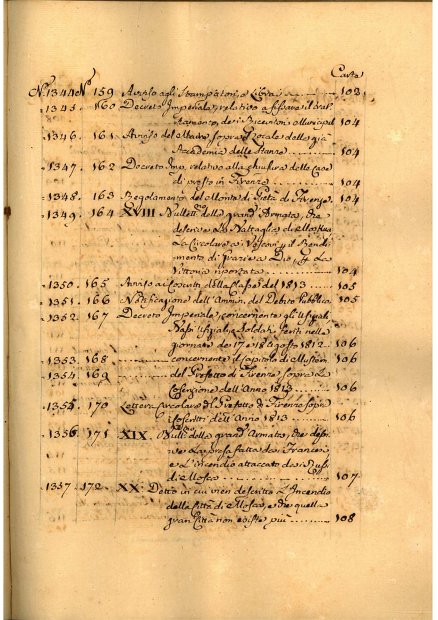 Carte
N. 1344 N. 159 Avviso agli Stampatori, e Libraj 103
1345. 160 Decreto Imperiale, relativo a fissare il trat
tamento dei Ricevitori Municipal 104
1346. 161 Avviso del Maire sopra il locale della già
Accademia delle Stanze 104
1347. 162 Decreto Imp. relativo alla chiusura delle Case
di presto in Firenze 104
1348. 163 Regolamento del Monte di Pietà di Firenze 104
1349. 164 XVIII Bullett. della grand'Armata, che
descrive la Battaglia di Mosskwa
La Circolare a Vescovi p. il Rendi
mento di Grazie a Dio, p. La
Vittoria riportata 104
1350. 165 Avviso ai Coscritti della Classe del 1813 105
1351. 166 Notificazione dell'Ammin. del Debito Pubblico 105
1352. 167 Decreto Imperiale, concernente gli Ufizial
Bassi Ufizial, e Soldati feriti nelle
giornate dei 17 e 18 agosto 1812 106
1353. 168 concernente il Capitolo di
1354. 169 del Prefetto di Firenze sopra la
Coscrizione dell'Anno 1813 106
1355. 170 Lettera Circolare del Prefetto di Firenze sopra
i Coscritti dell'Anno 1813 106
1356. 171 XIX. Bull. della grand'Armata, che descri
ve la presa fatta dai Francesi
e l'incendio attaccato dai Russi
di Mosca 107
1357. 172 XX. Detto in cui vien descritto l'Incendio
della Città di Mosca, e che quella
gran Città non esiste più 108